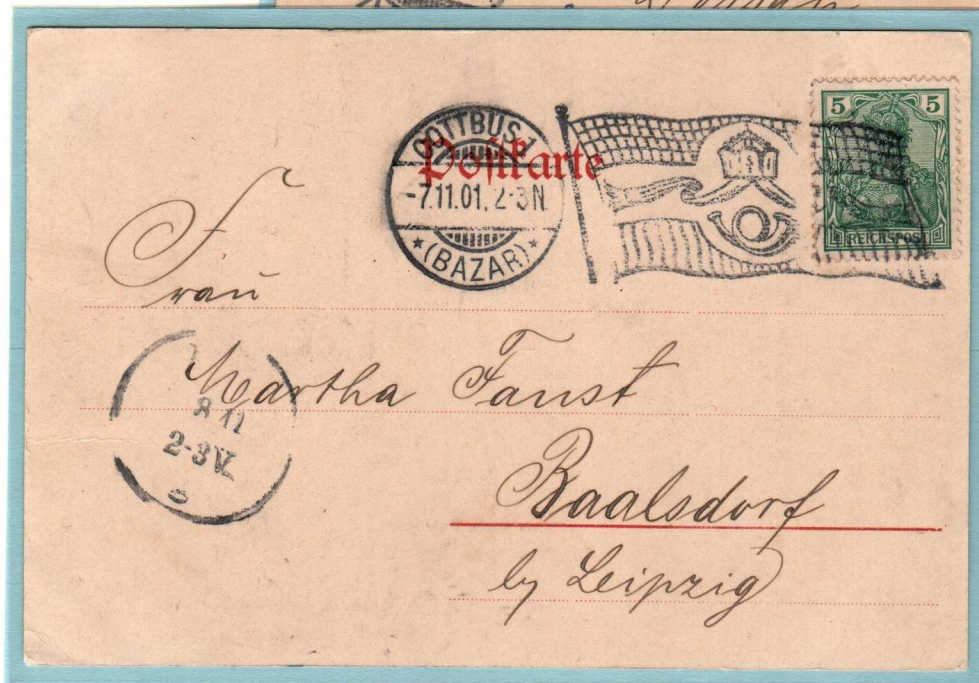 COTTBUS 1
Postkarte
-7.11.01. 2-3N.
*(BAZAR)*
5 5
REICHSPOST
Frau
Martha Faust
8 11
2-3V.
Baalsdorf
by Leipzig